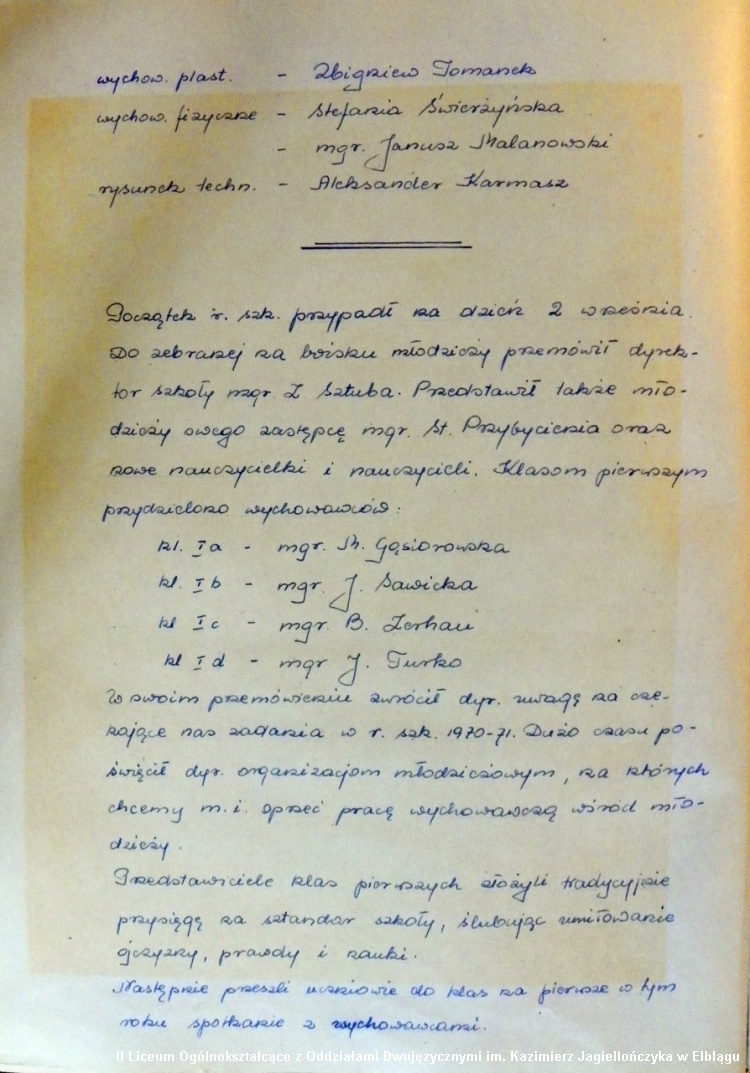 wychow. plast. - Zbigniew Tomanek
wychow. fizyczne - Stefania Świerżyńska
- mgr. Janusz Malanowski
rysunek techn. - Aleksander Karmasz
Początek r. szk. przypadł na dzień 2 września.
Do zebranej na boisku młodzieży przemówił dyrek-
tor szkoły mgr. Z Sztuba. Przedstawił także mło-
dzieży swego zastępcę mgr. St. Przybycienia oraz
nowe nauczycielki i nauczycieli. Klasom pierwszym
przydzielono wychowawców:
kl. Ia - mgr. M. Gąsiorowska
kl. Ib - mgr. J. Sawicka
kl Ic - mgr. B. Zerhau
kl Id - mgr J. Turko
W swoim przemówieniu zwrócił dyr. uwagę na cze-
kające nas zadania w r. szk. 1970-71. Dużo czasu po-
święcił dyr. organizacjom młodzieżowym, na których
chcemy m.i. oprzeć pracę wychowawczą wśród mło-
dzieży.
Przedstawiciele klas pierwszych złożyli tradycyjnie
przysięgę na sztandar szkoły, ślubując umiłowanie
ojczyzny, prawdy i nauki.
Następnie przeszli uczniowie do klas na pierwsze w tym
roku spotkanie z wychowawcami.
II Liceum Ogólnokształcące z Oddziałami Dwujęzycznymi im. Kazimierz Jagiellończyka w Elblągu